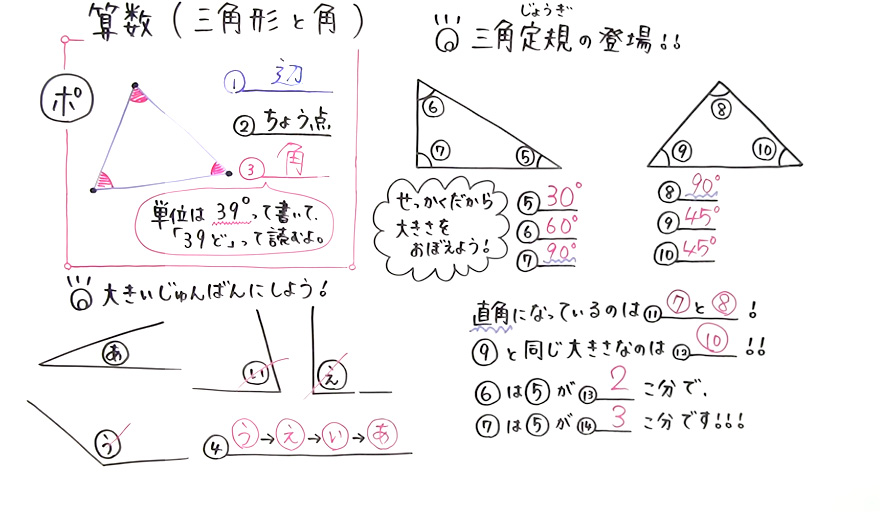 算数(三角形と角)
ポ
① 辺
② ちょう点
③ 角
単位は39°って書いて、
「39ど」って読むよ。
大きいじゅんばんにしよう!
あ
い
え
う
④ う→え→い→あ
じょうぎ
三角定規の登場!!
⑥
⑦
⑤
⑧
⑨
⑩
せっかくだから
大きさを
おぼえよう!
⑤ 30°
⑥ 60°
⑦ 90°
⑧ 90°
⑨ 45°
⑩ 45°
直角になっているのは⑪⑦と⑧!
⑨と同じ大きさなのは⑫⑩!!
⑥は⑤が⑬2こ分で、
⑦は⑤が⑭3こ分です!!!